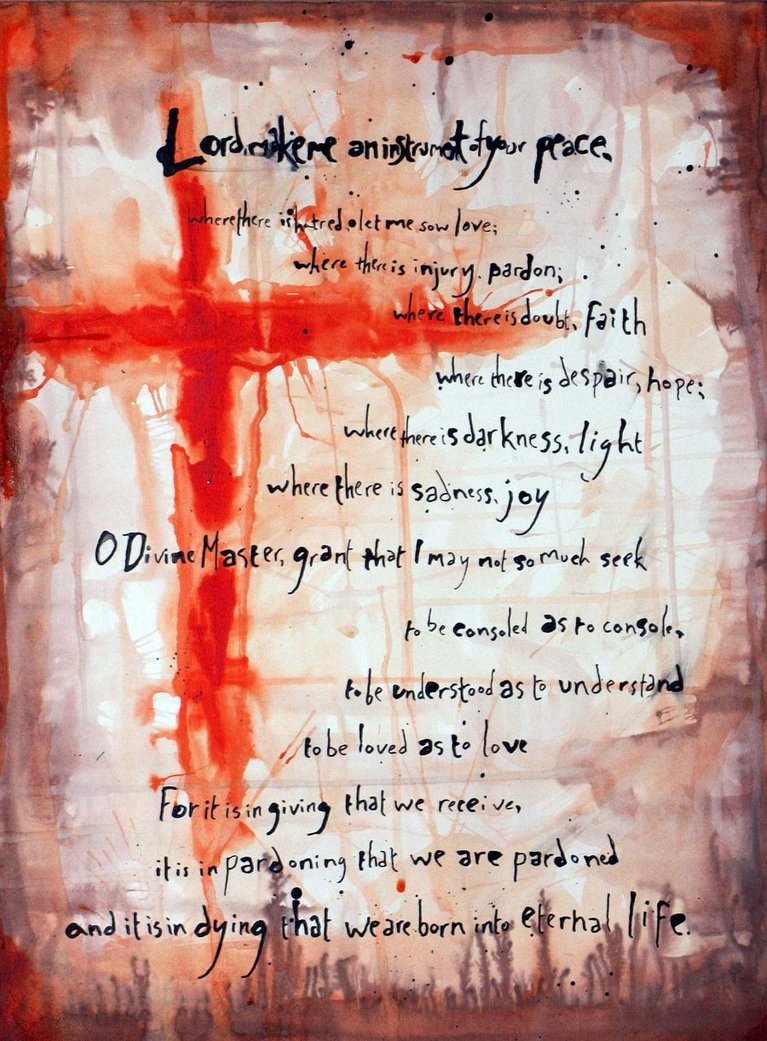 Lord, make me an instrument of your peace.
where there is hatred let me sow love;
where there is injury, pardon;
where there is doubt, faith
where there is despair, hope;
where there is darkness, light
where there is sadness, joy
O Divine Master, grant that I may not so much seek
to be consoled as to console,
to be understood as to understand
to be loved as to love
For it is in giving that we receive,
it is in pardoning that we are pardoned
and it is in dying that we are born into eternal life.